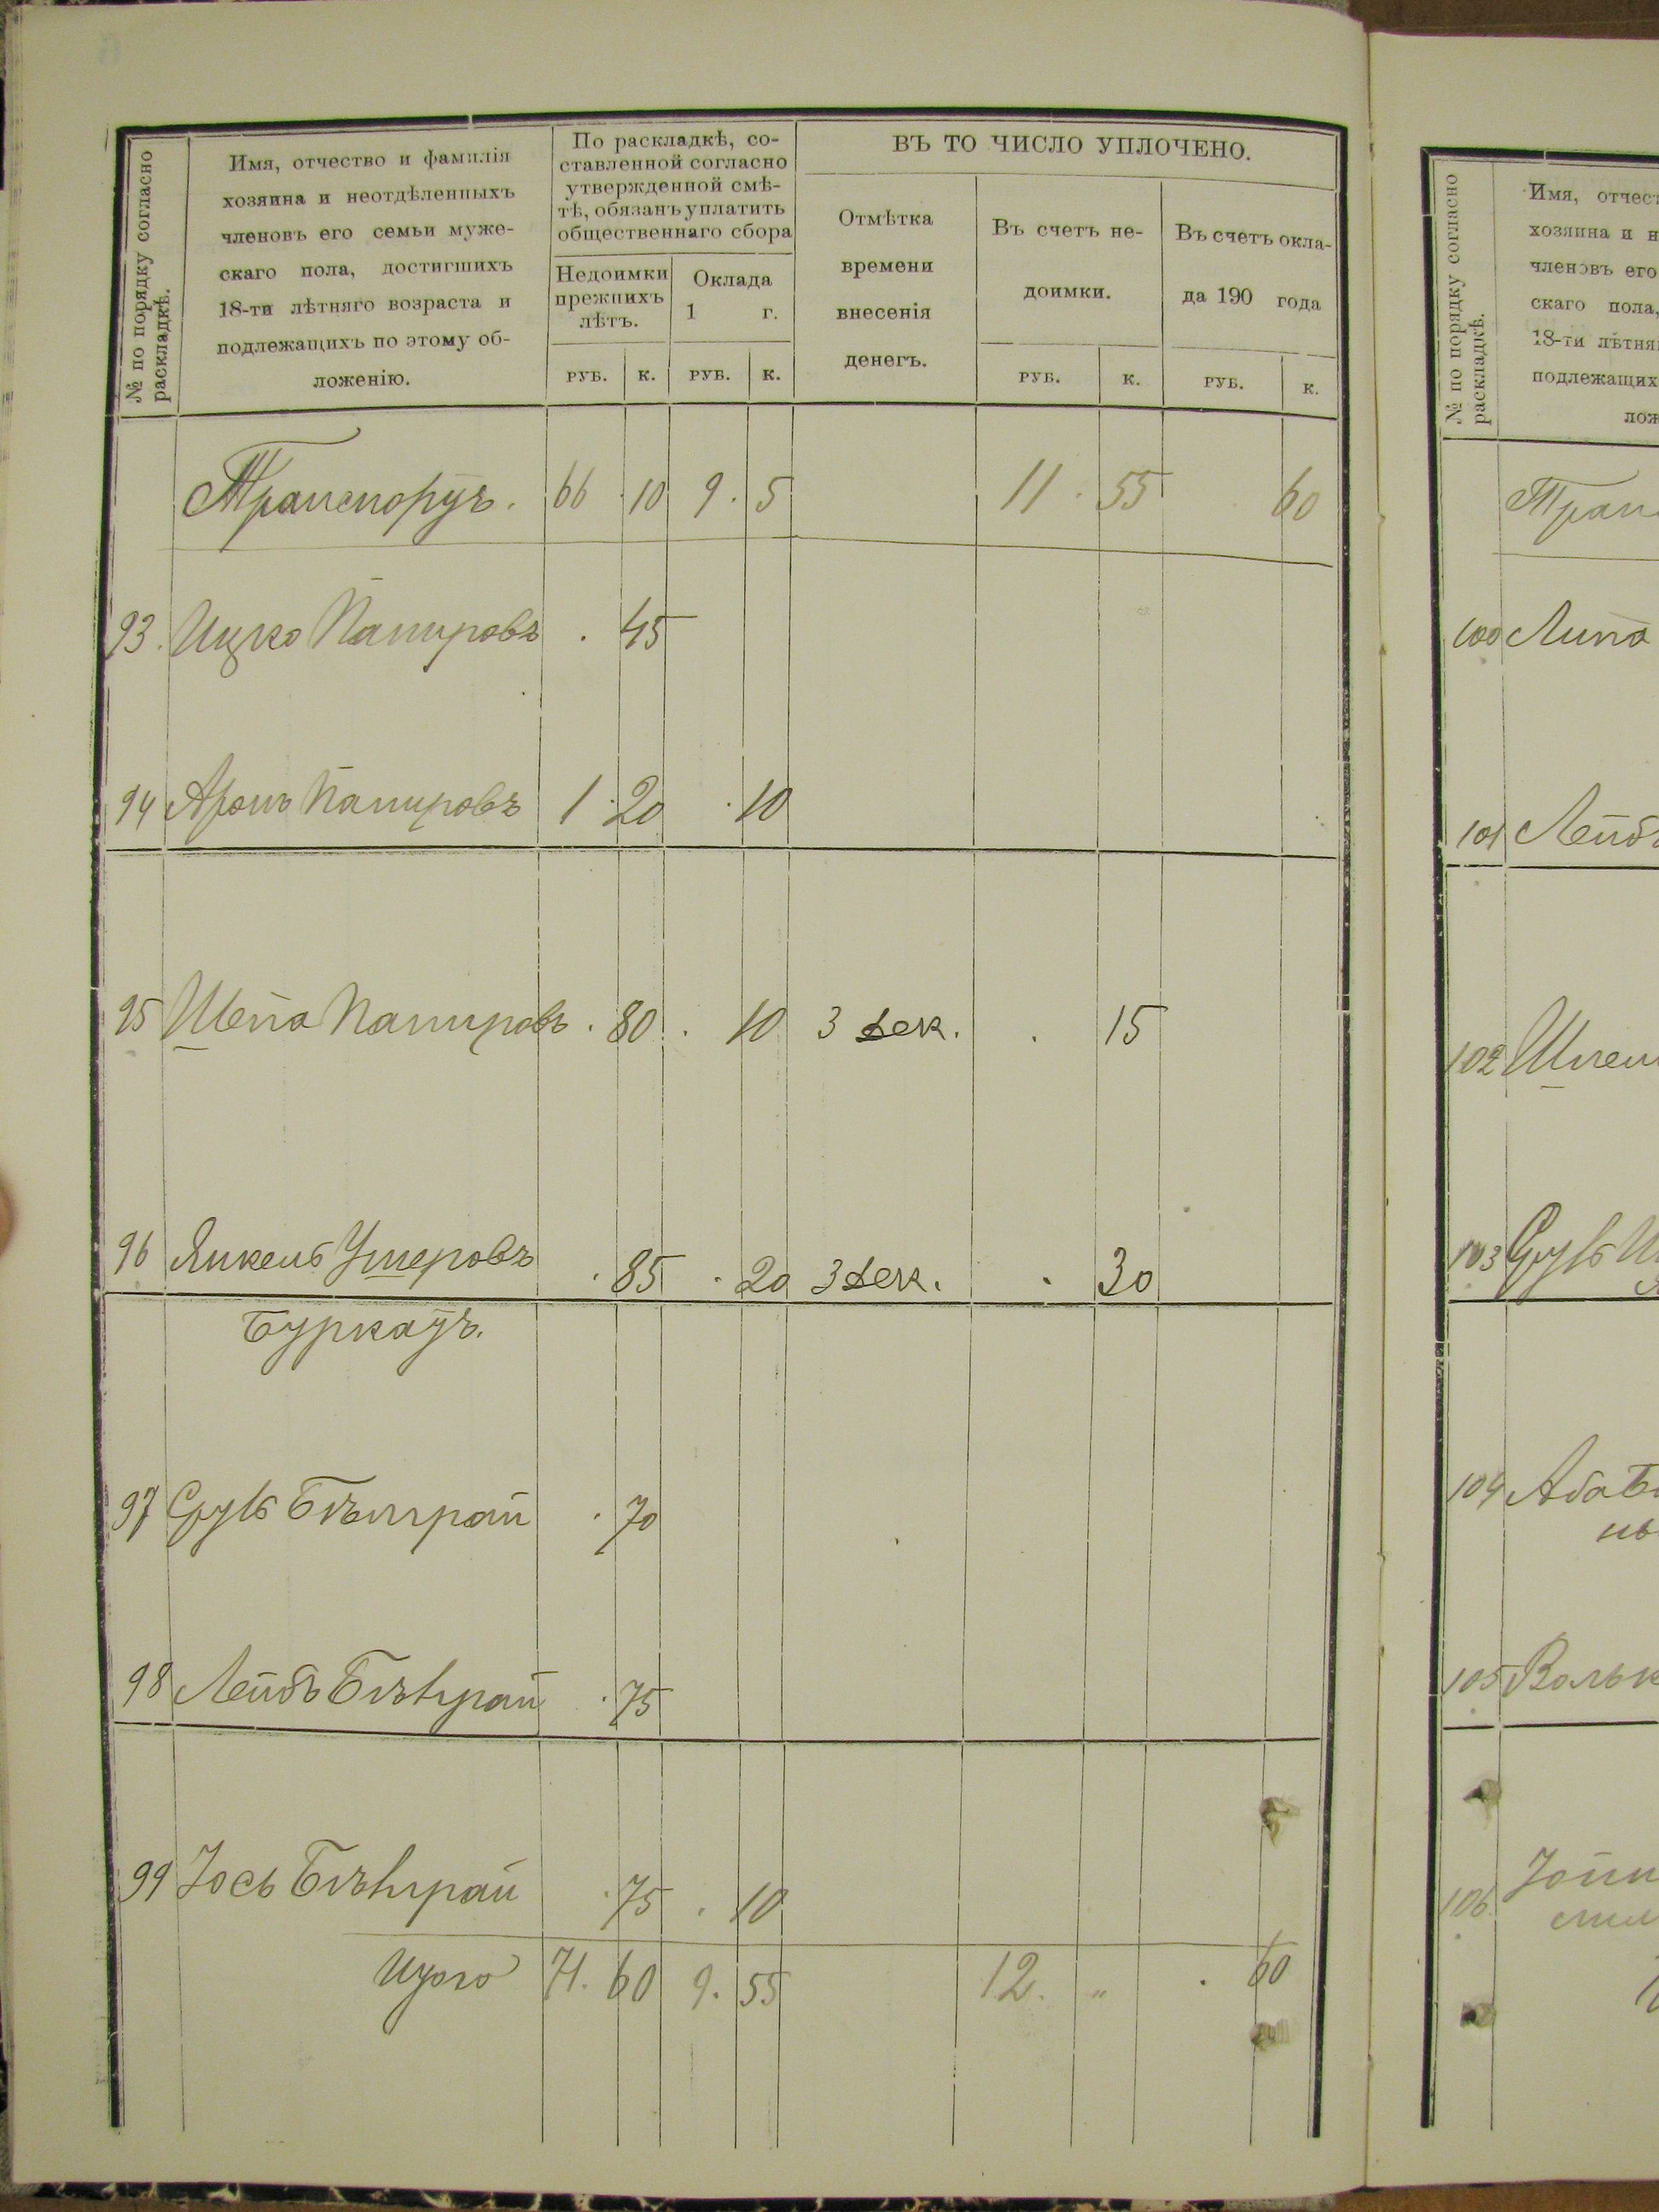 № по порядку согласно раскладкѣ.
Имя, отчество и фамилія
хозяина и неотдѣленныхъ
членовъ его семьи муже-
скаго пола, достигшихъ
18-ти лѣтняго возраста и
подлежащихъ по этому об-
ложенію.
По раскладкѣ, со-
ставленной согласно
утвержденной смѣ-
тѣ, обязанъ уплатить
общественнаго сбора
Недоимки
прежнихъ
лѣтъ.
Оклада
1 г.
РУБ. К. РУБ. К.
ВЪ ТО ЧИСЛО УПЛОЧЕНО.
Отмѣтка
времени
внесенія
денегъ.
Въ счетъ не-
доимки.
Въ счетъ окла-
да 190 года
РУБ. К. РУБ. К.
Транспортъ. 66 10 9. 5 11. 55 60
93. Ицко Папировъ . 45
94 Аронъ Папировъ 1. 20 . 10
95 Шепа Папировъ . 80 . 10 3 Дек. . 15
96 Янкель Ушеровъ . 85 . 20 3 Дек. . 30
Буркатъ.
97 Сруль Бѣлграй . 70
98 Лейбъ Бѣлграй . 75
99 Іось Бѣлграй . 75 . 10
Итого 71. 60 9. 55 12. " . 60
№ по порядку согласно раскладкѣ.
Имя, отчест
хозяина и н
членовъ его
скаго пола,
18-ти лѣтня
подлежащих
лож
Тран
100 Липа
101 Лейб
102
103 Сруль
104 Аба
105 Вольк
106